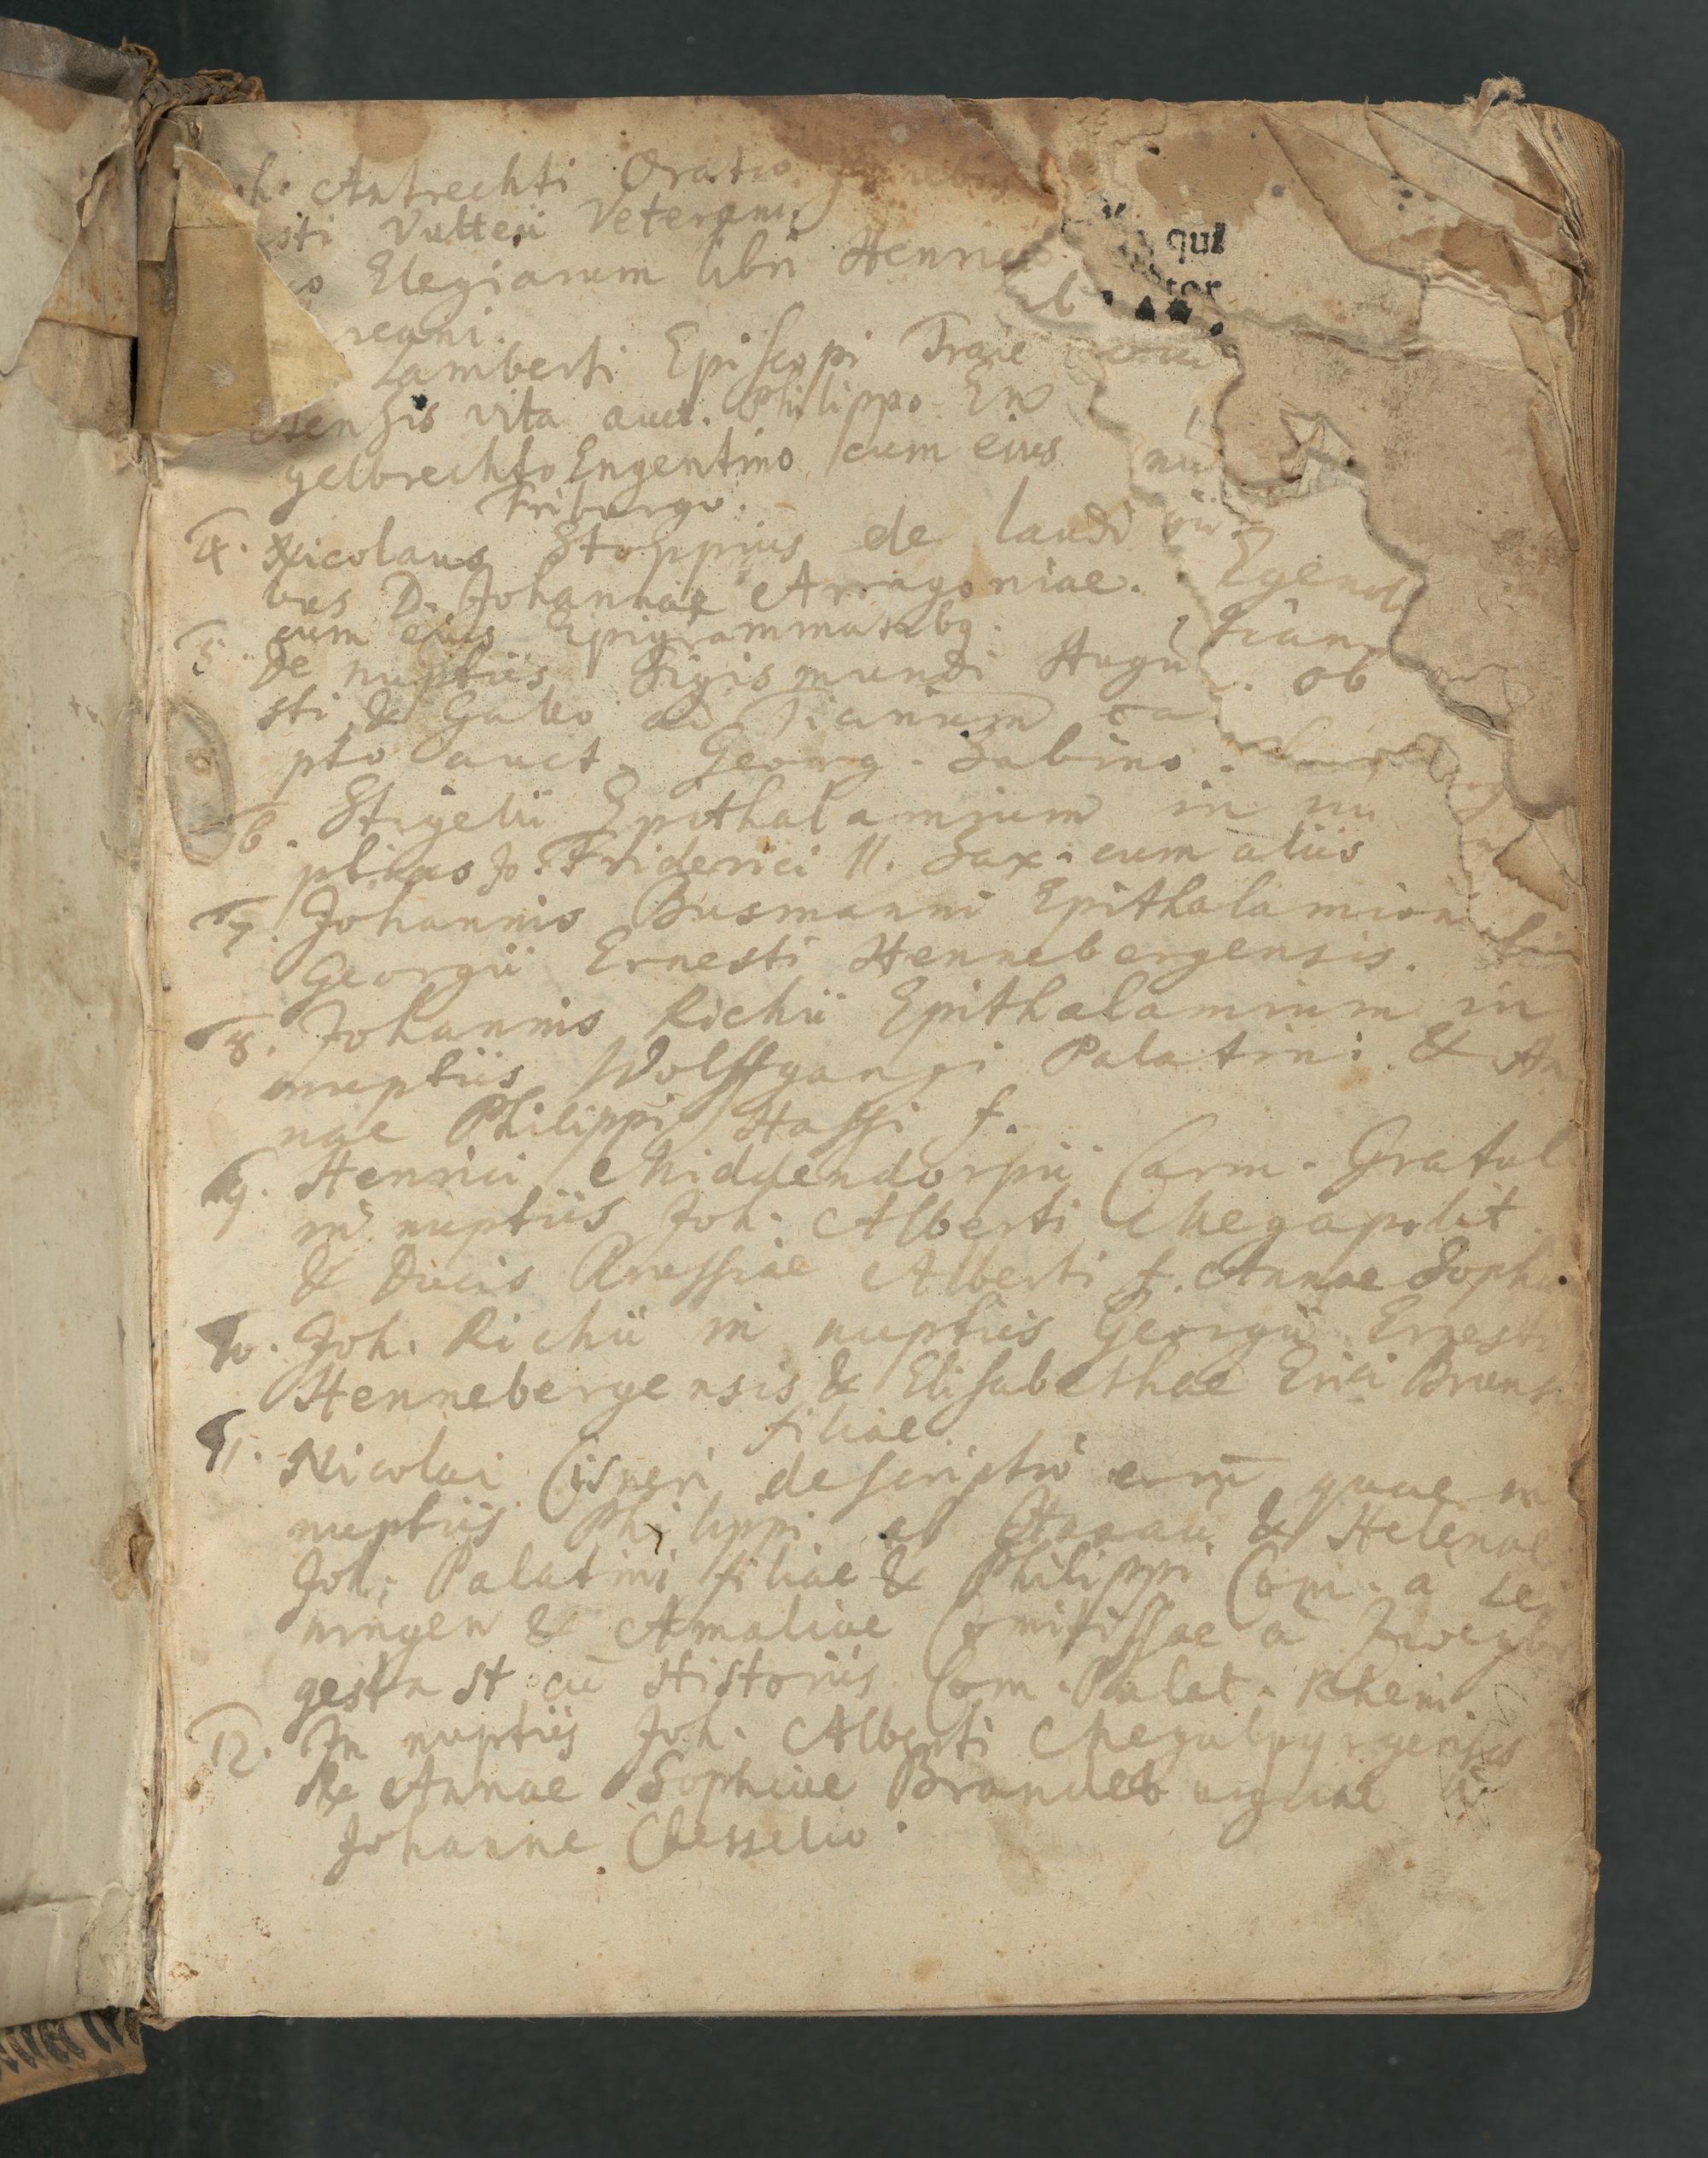 h. Antrechti Oratio
sti Vulteii Veterani
Elegiarum libri Henrici
reani.
qui
tor
Lamberti Episcopi Traie
ctensis vita auct. Philippo En
gelbrechto Engentino cum eius
Friburgo.
4. Nicolaus Stoppius de laudi
bus D. Johannae Arragoniae.
cum eius Epigrammatibq.
5. De nuptiis Sigismundi Augu
sti & Gallo ad Ticinum ca
pto auct. Georg. Sabino.
ob
6. Stigelii Epithalamium in nu
ptias Jo. Friderici II. Sax. cum aliis
7. Johannis Busmanni Epithalamion
Georgii Ernesti Hennebergensis.
8. Johannis Richii Epithalamium in
nuptiis Wolffgangi Palatini & An
nae Philippi Hassi f.
9. Henrici Middendorpii Carm. Gratul
in nuptiis Joh. Alberti Megapolit.
& Ducis Prussiae Alberti f. Annae Sophi
10. Joh. Richii in nuptiis Georgii Ernesti
Hennebergensis & Elisabethae Erici Bruns
filiae
11. Nicolai Cisneri descriptio erũ quae in
nuptiis Philippi ab Hanau & Helenae
Joh. Palatini filiae & Philippi Com. a Lei
ningen & Amaliae Comitissae a Zweybr
gesta st cũ Historiis Com. Palat. Rheni.
12. In nuptiis Joh. Alberti Megalpyrgensis
& Annae Sophiae Brandeburgicae a
Johanne Chesselio.